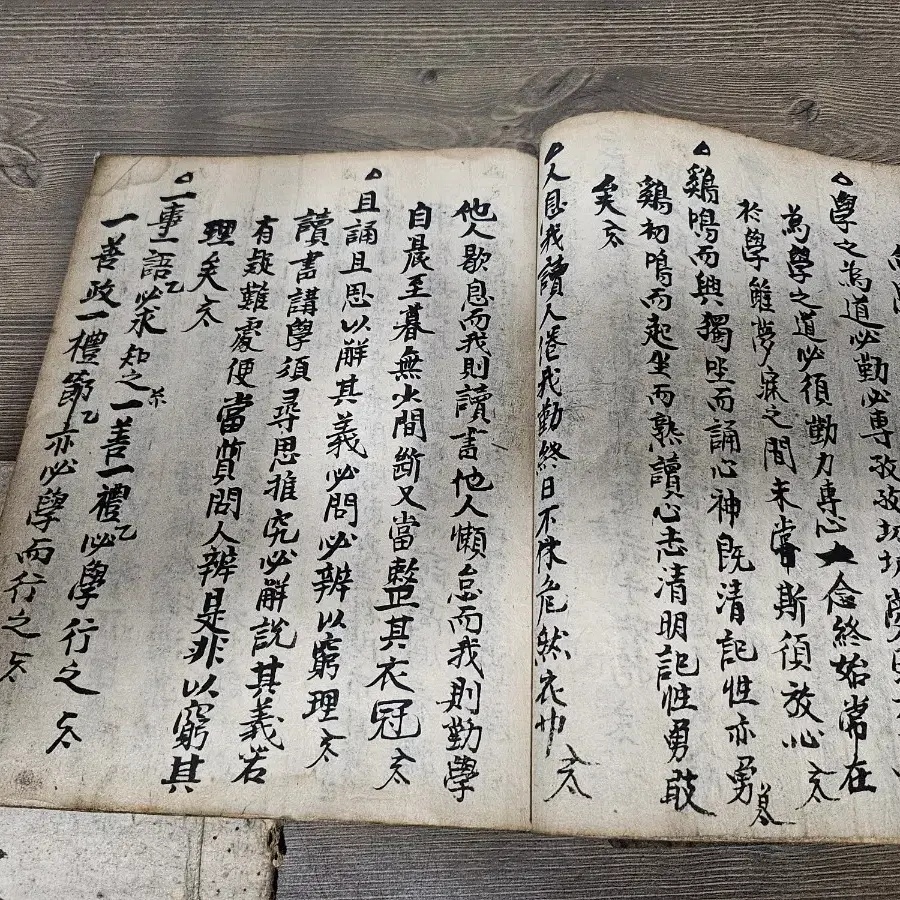 學之爲道必勤必專孜孜孜孜夢
爲學之道必須勤力專心大念終始常在
於學雖夢寐之間未嘗斯須放心 厺
鷄鳴而興獨坐而誦心神旣清記性亦勇
鷄初鳴而起坐而熟讀心志清明記性勇敢
矣 厺
人息我讀人倦我勤終日不怠危然衣巾 厺
他人歇息而我則讀書他人懶怠而我則勤學
自晨至暮無少間斷又當整其衣冠 厺
且誦且思以解其義必問必辨以窮理 厺
讀書講學須尋思推究必解說其義若
有疑難處便當質問人辨是非以窮其
理矣 厺
一事一語乙必求知之一善一禮乙必學行之 厺
一善政一禮節乙亦必學而行之 厺